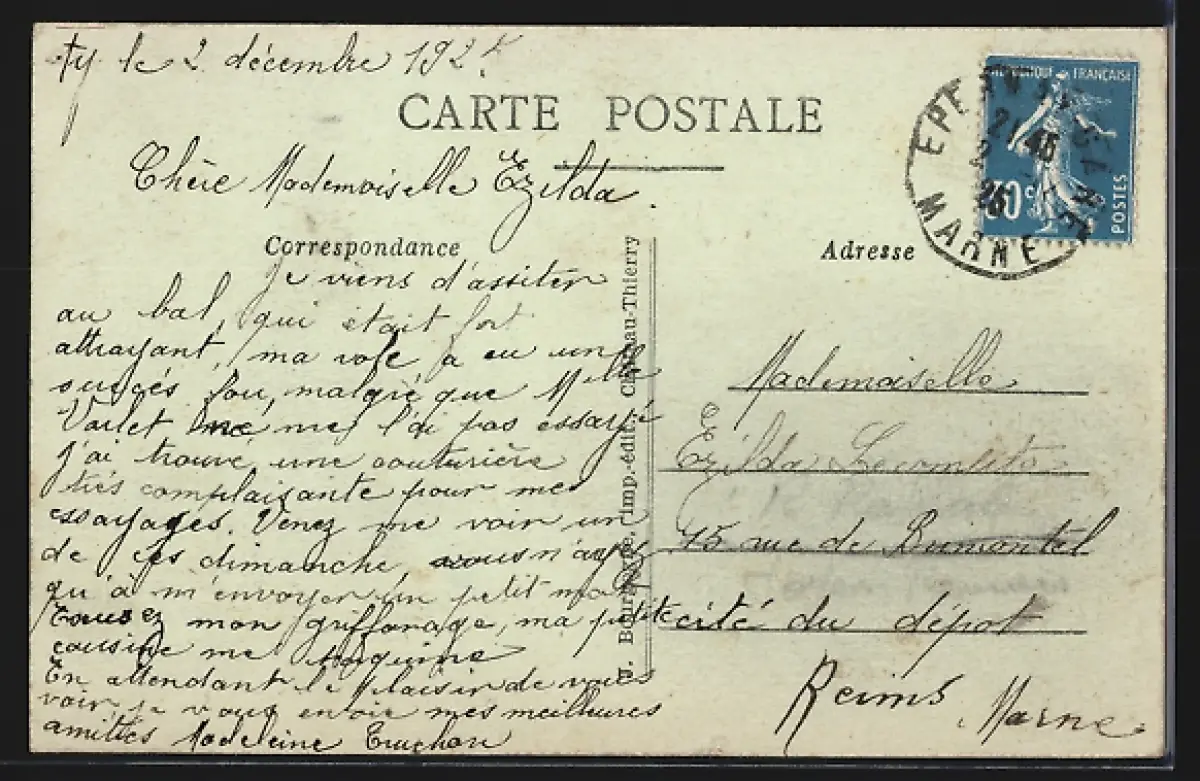 ty le 2 décembre 192
CARTE POSTALE
Chère Mademoiselle Ezilda.
Correspondance
Je viens d'assiter
au bal, qui était fort
attrayant, ma robe a eu un
succés fou, malgré que Melle
Varlet ne me l'ai pas essayé
j'ai trouvé une couturière
très complaisante pour mes
essayages. Venez me voir un
de ces dimanche vous n'avez
qu'à m'envoyer un petit mot
Excusez mon griffonage, ma petite
cousine me taquine
En attendant le plaisir de vous
voir je vous envoie mes meilleures
amitiés Madeleine Truchon
Bourgogne, imp.-édit. Château-Thierry
REPUBLIQUE FRANÇAISE
30c
POSTES
EPERNAY GARE
21 45
2
25
MARNE
Adresse
Mademoiselle
Ezilda Lecomte
15 rue de
cité du dépot
Reims Marne